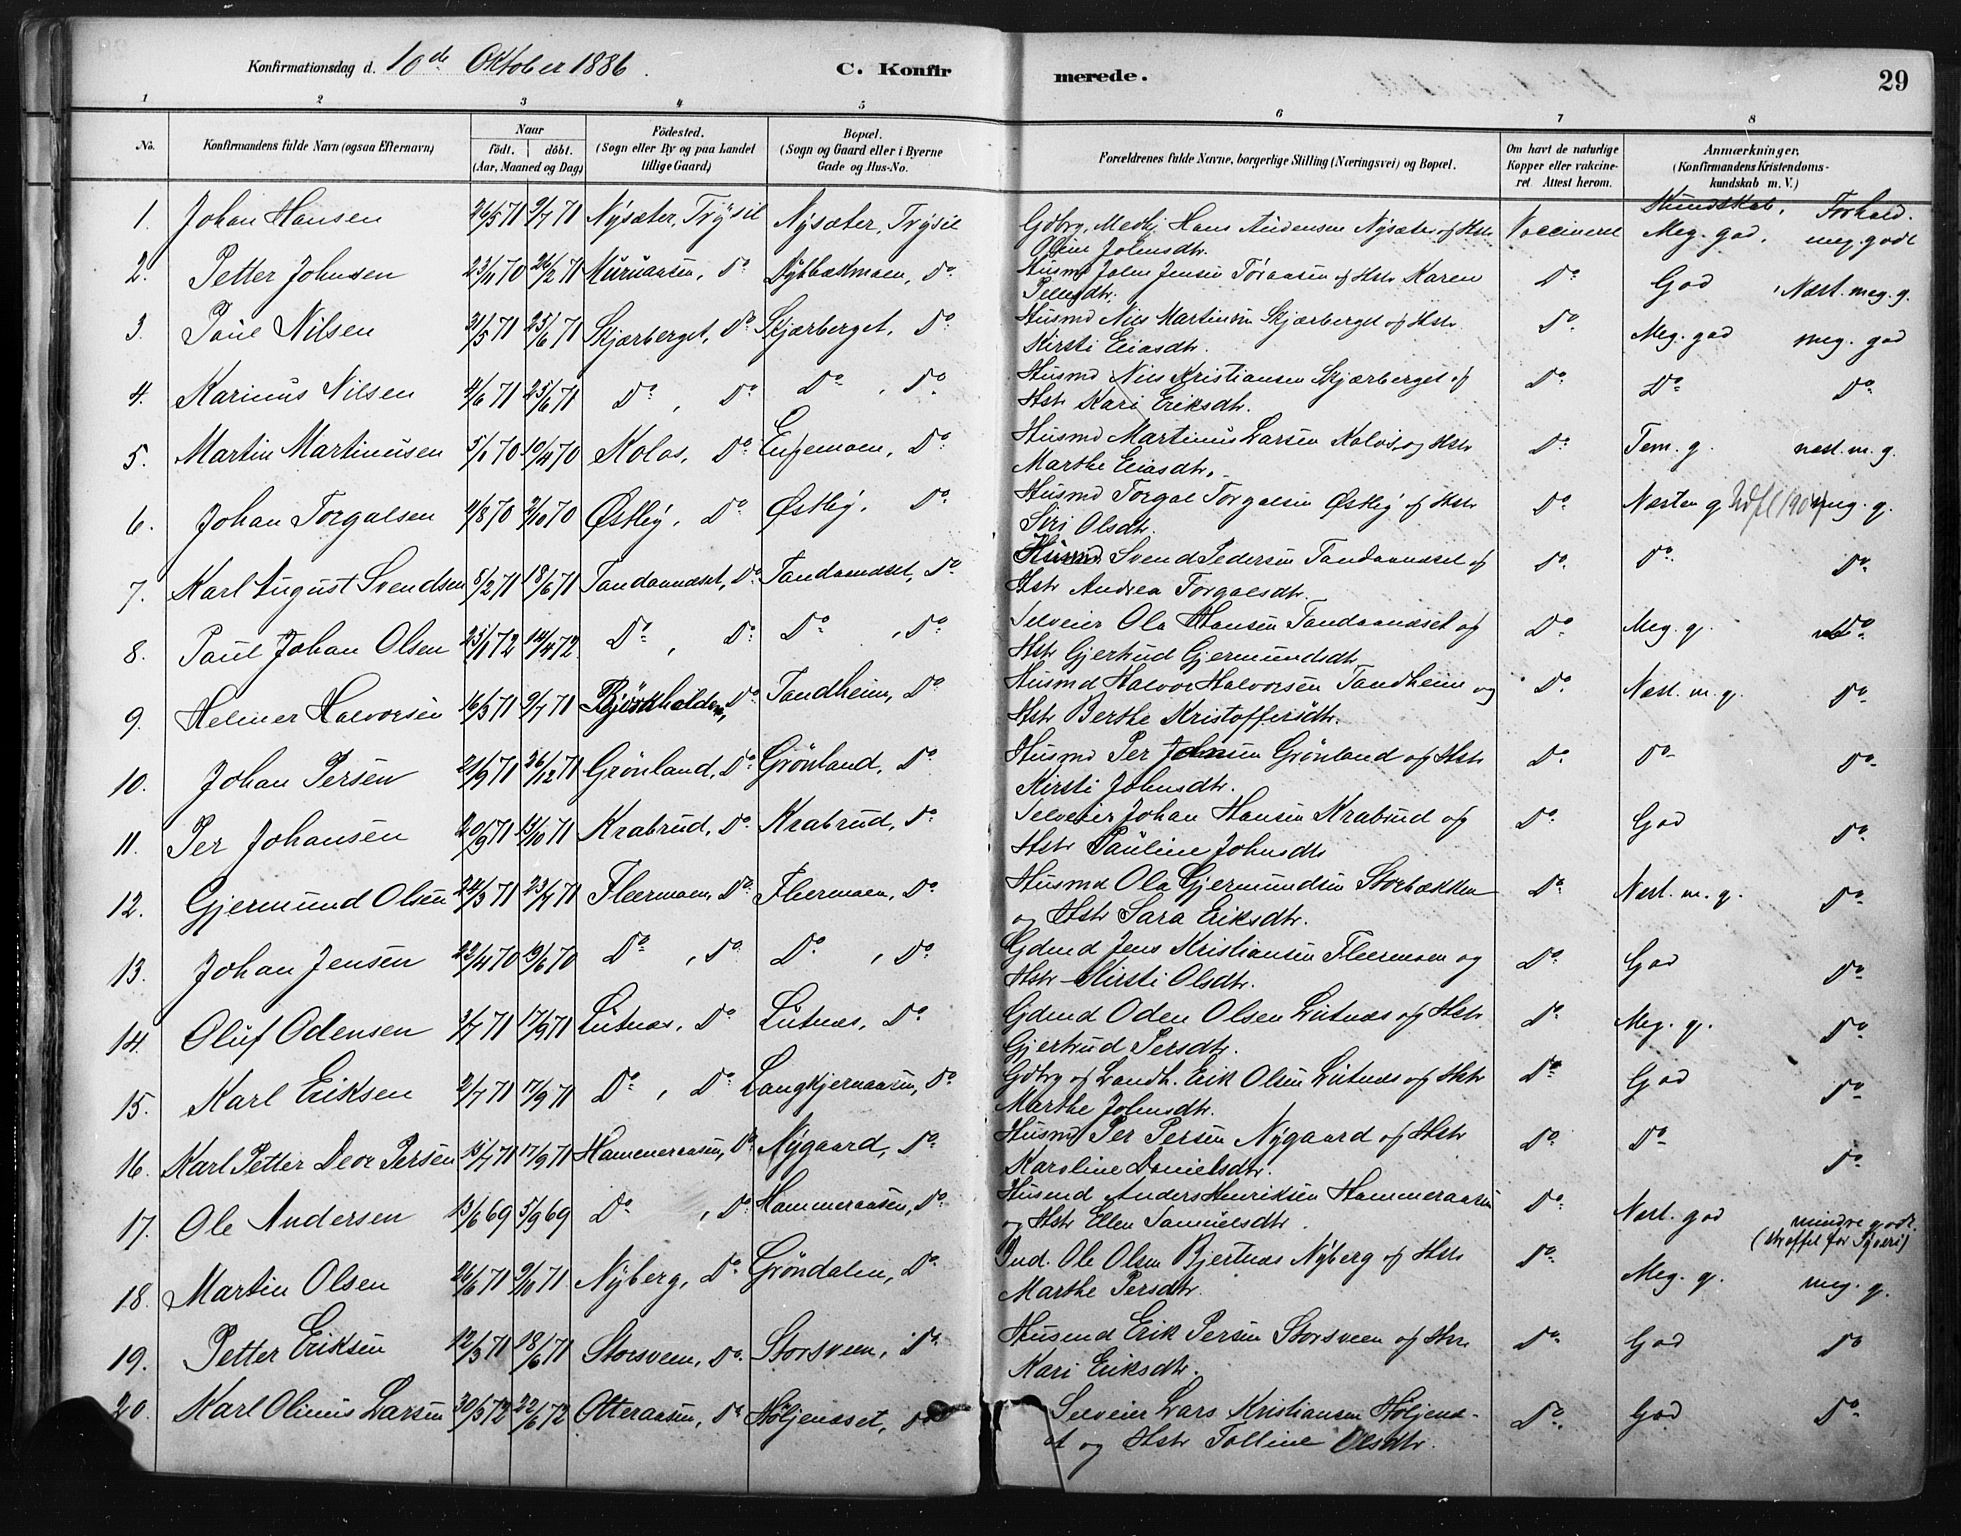 Konfirmationsdag d. 10de Oktober 1886. C. Konfirmerede. 29
1 2 3 4 5 6 7 8
No. Konfirmandens fulde Navn (ogsaa Efternavn) Naar födt. döbt. (Aar, Maaned og Dag) Födested. (Sogn eller By og paa Landet tillige Gaard) Bopæl. (Sogn og Gaard eller i Byerne Gade og Hus-No. Forældrenes fulde Navne, borgerlige Stilling (Næringsvei) og Bopæl. Om havt de naturlige Kopper eller vaccineret Attest herom. Anmærkninger, (Konfirmandens Kristendomskundskab m. V.)
Kundskab, Forhold.
1. Johan Hansen 26/5 71 9/7 71 Nysæter, Trysil Nysæter, Trysil Gdbrg. Medhj. Hans Andersen Nysæter og Hstr Vaccineret Meg. god, meg. godt
Oline Johnsdtr.
2. Petter Johnsen 23/11 70 26/2 71 Do Nybbakmoen, Do Husmd John Jensen og Hstr Karen Do God Næst. meg. g.
3. Paul Nilsen 31/5 71 25/6 71 Skjærberget, Do Skjærberget, Do Husmd Nils Martinsen Skjærberget og Hstr Do Meg. god meg. god
Kirsti Eliasdtr.
4. Karinus Nilsen 4/6 71 25/6 71 Do, Do Do, Do Husmd Nils Kristiansen Skjærberget og Do Do Do
Hstr Kari Eriksdtr.
5. Martin Martinusen 5/1 70 10/4 70 Kolos, Do Engemoen, Do Husmd Martinus Larsen og Hstr Do Tem. g. næst. m. g.
Marthe Eliasdtr.
6. Johan Torgalsen 4/8 70 2/10 70 Østby, Do Østby, Do Husmd Torgal Torgalsen Østby og Hstr Do Næsten g. meg. g.
Siri Olsdtr.
7. Karl August Svendsen 8/2 71 18/6 71 Tandaanæset, Do Tandaanæset, Do Husmd Svend Pedersen Tandaanæset og Do Do Do
Hstr Andrea Torgalsdtr.
8. Paul Johan Olsen 23/1 72 14/4 72 Do, Do Do, Do Selveier Ola Hansen Tandaanæset og Do Meg. g. Do
Hstr Gjertrud Gjermundsdtr
9. Helmer Halvorsen 16/5 71 9/7 71 Bjørkholden, Do Tandheim, Do Husmd Halvor Halvorsen Tandheim og Do Næst. m. g. Do
Hstr Berthe Kristoffersdtr.
10. Johan Persen 21/9 71 26/12 71 Grönland, Do Grönland, Do Husmd Per Johnsen Grönland og Hstr Do Do Do
Kirsti Johnsdtr.
11. Per Johansen 20/9 71 15/10 71 Krabrud, Do Krabrud, Do Selveier Johan Hansen Krabrud og Do God Do
Hstr Pauline Johnsdtr
12. Gjermund Olsen 24/3 71 23/4 71 Fleermoen, Do Fleermoen, Do Husmd Ola Gjermundsen Storbækken Do Næst. m. g. Do
og Hstr Sara Eriksdtr.
13. Johan Jensen 22/4 70 19/6 70 Do, Do Do, Do Gdmd Jens Kristiansen Fleermoen og Do God Do
Hstr Kirsti Olsdtr.
14. Oluf Odensen 3/7 71 17/9 71 Lutnæs, Do Lutnæs, Do Gdmd Oden Olsen Lutnæs og Hstr Do Meg. g. Do
Gjertrud Persdtr.
15. Karl Eriksen 2/7 71 17/9 71 Do, Do Langkjernaasen, Do Gdbrg og Landh. Erik Olsen Lutnæs og Hstr Do God Do
Marthe Johnsdtr.
16. Karl Petter Deor Persen 15/7 71 17/9 71 Hammeraasen, Do Nygaard, Do Husmd Per Persen Nygaard og Hstr Do Do Do
Karoline Danielsdtr.
17. Ole Andersen 13/6 69 5/9 69 Do, Do Hammeraasen, Do Husmd Anders Henriksen Hammeraasen Do Næst. god mindre godt.
og Hstr Ellen Samuelsdtr. (straffet for Tyveri)
18. Martin Olsen 26/6 71 9/10 71 Nyberg, Do Gröndalen, Do Ind. Ole Olsen Bjertnæs Nyberg og Hstr Do Meg. g. meg. g.
Marthe Persdtr.
19. Petter Eriksen 12/3 71 18/6 71 Storsveen, Do Storsveen, Do Husmd Erik Persen Storsveen og Hstr Do God Do
Kari Eriksdtr.
20. Karl Olinus Larsen 30/5 72 22/6 72 Otteraasen, Do Höljenæset, Do Selveier Lars Kristiansen Höljenæ- Do God Do
et og Hstr Tolline Olsdtr.